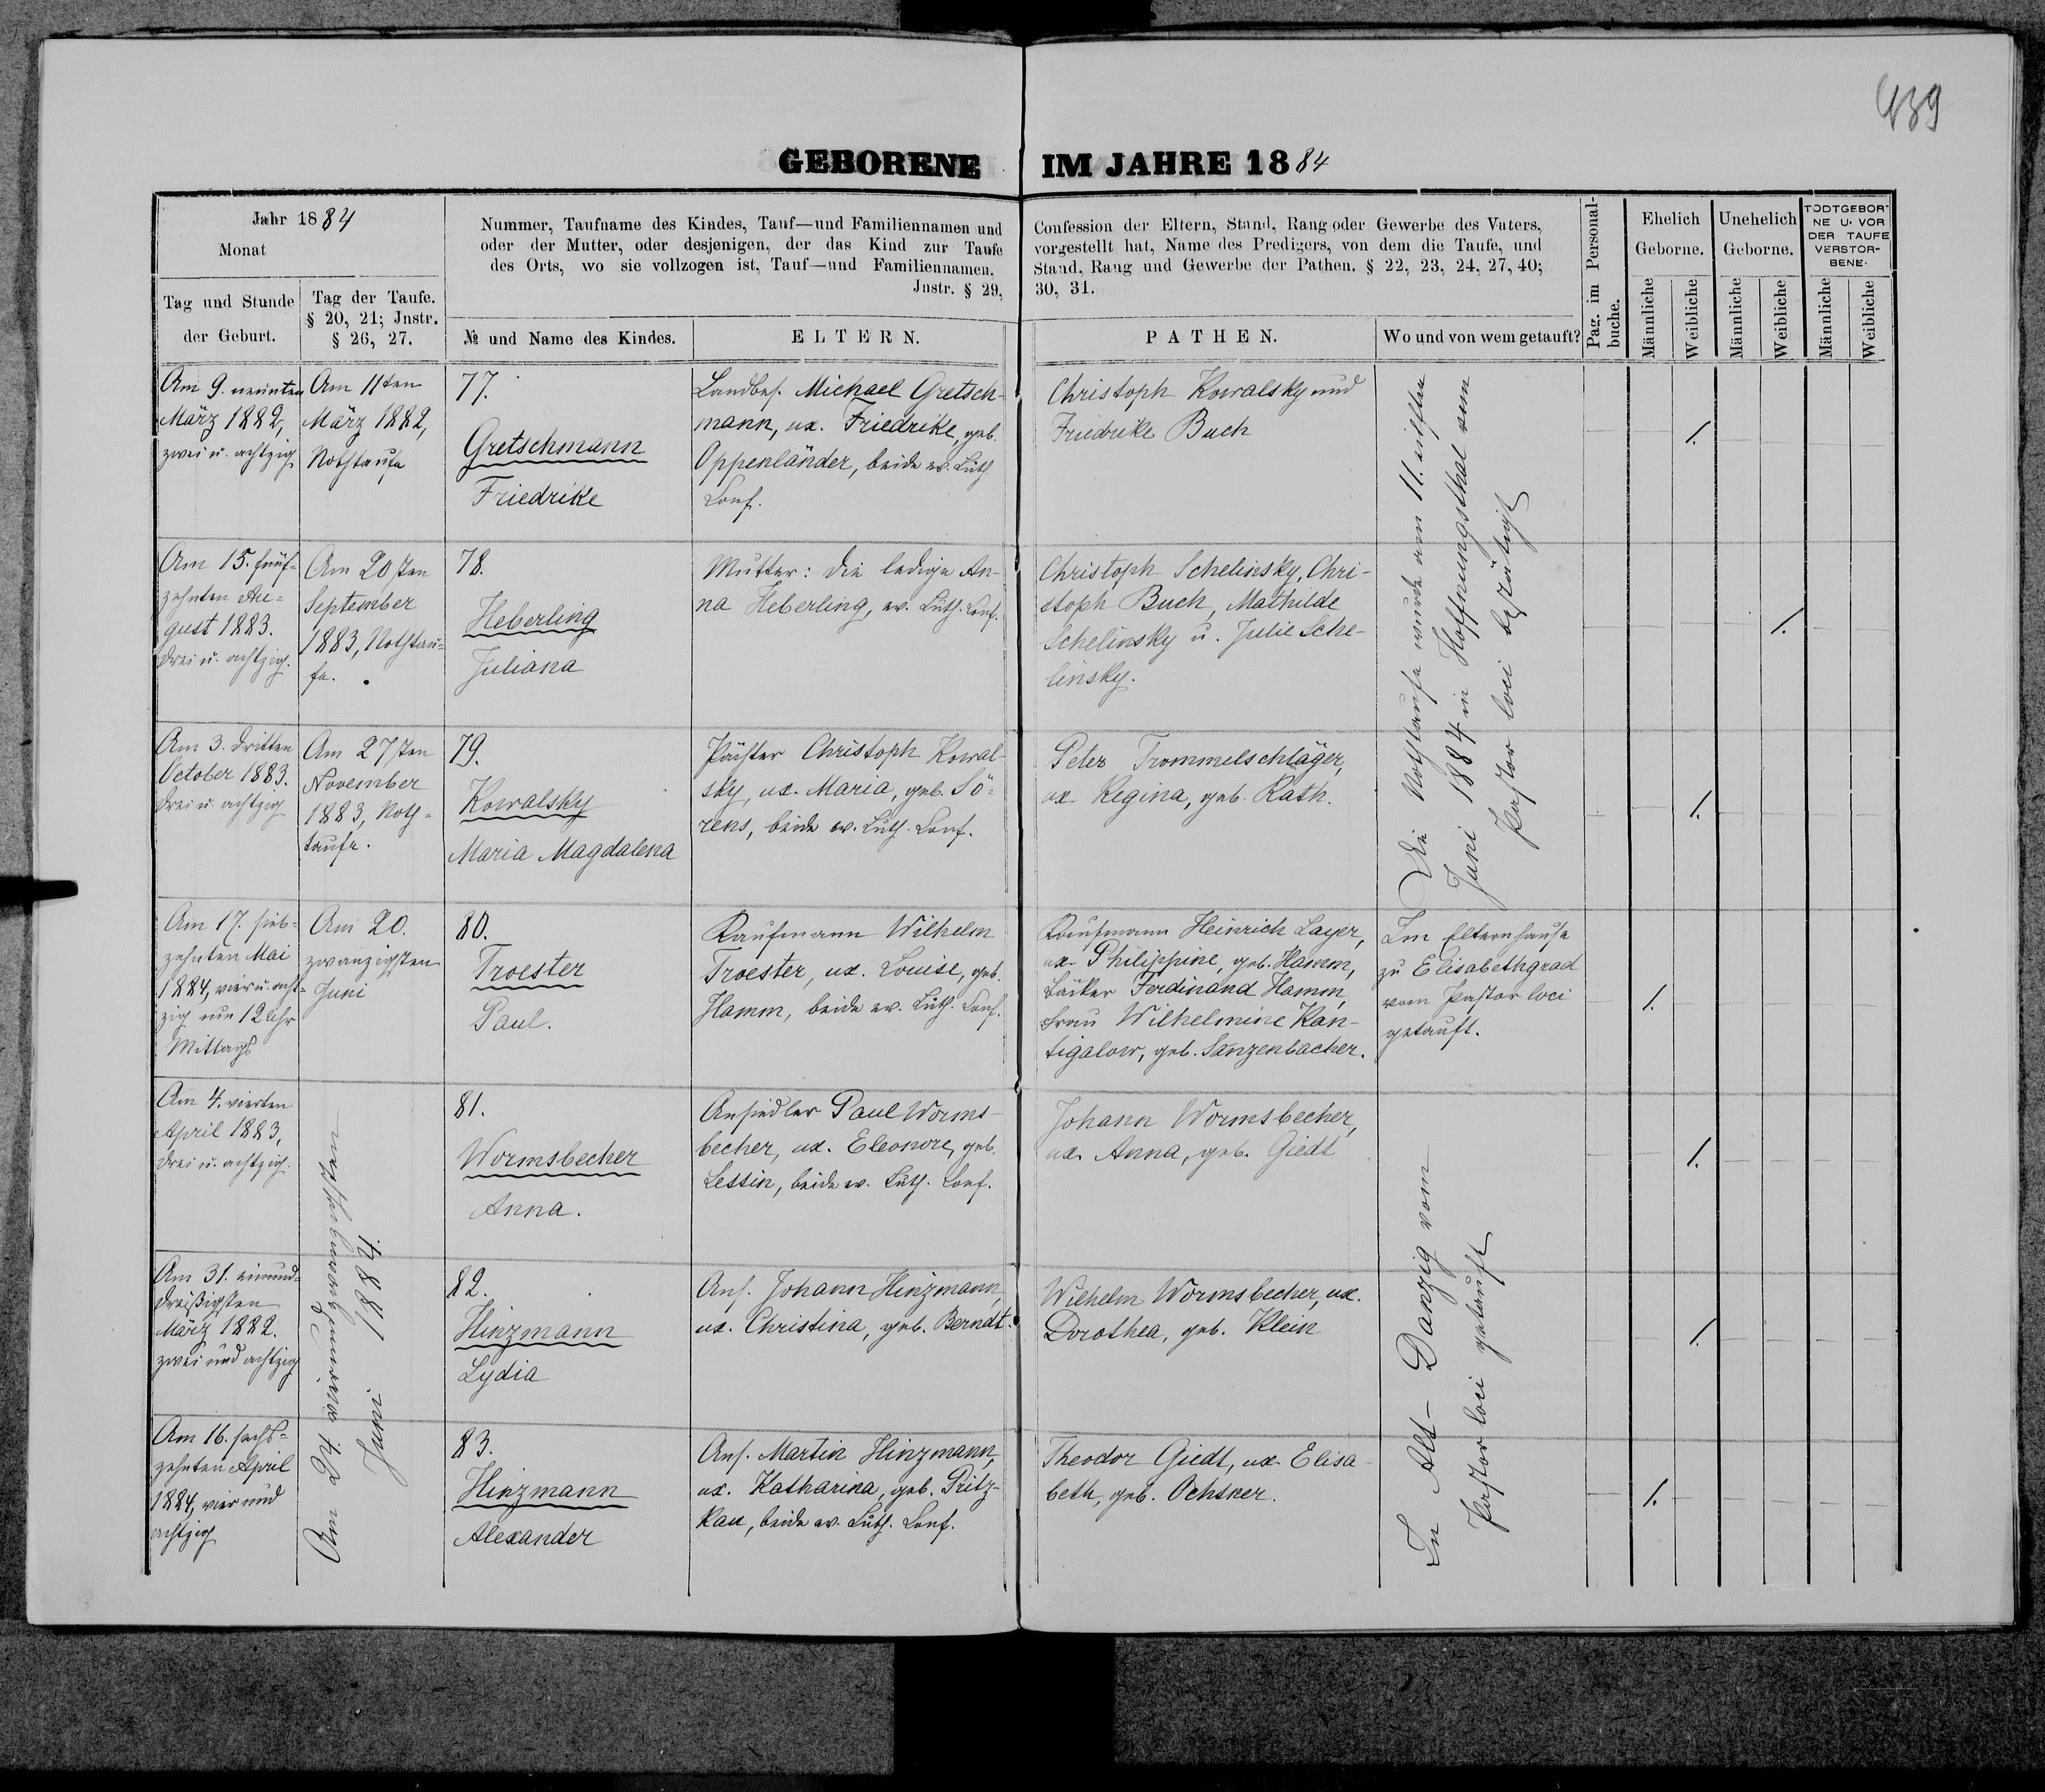 439
GEBORENE IM JAHRE 1884
Jahr 1884
Monat
Tag und Stunde
der Geburt.
Tag der Taufe.
§ 20, 21; Jnstr.
§ 26, 27.
Nummer, Taufname des Kindes, Tauf—und Familiennamen und
oder der Mutter, oder desjenigen, der das Kind zur Taufe
des Orts, wo sie vollzogen ist, Tauf—und Familiennamen,
Jnstr. § 29,
№ und Name des Kindes.
ELTERN.
Confession der Eltern, Stand, Rang oder Gewerbe des Vaters,
vorgestellt hat, Name des Predigers, von dem die Taufe, und
Stand, Rang und Gewerbe der Pathen. § 22, 23, 24, 27, 40;
30, 31.
PATHEN.
Wo und von wem getauft?
Pag. im Personal-
buche.
Ehelich
Geborne.
Unehelich
Geborne.
TODTGEBOR-
NE U. VOR
DER TAUFE
VERSTOR-
BENE.
Männliche
Weibliche
Männliche
Weibliche
Männliche
Weibliche
Am 9. neunten
März 1882,
zwei u. achtzig
Am 11ten
März 1882,
Nothtaufe
77.
Gretschmann
Friedrike
Landbes. Michael Gretsch-
mann, ux. Friedrike, geb.
Oppenländer, beide ev. Luth
Conf.
Christoph Kowalsky und
Friedrike Buch
Die Nothtaufe wurde am 11. eilften
Juni 1884 in Hoffnungsthal vom
Pastor loci bestätigt
1.
Am 15. fünf-
zehnten Au-
gust 1883.
drei u. achtzig.
Am 20sten
September
1883, Nothtau-
fe.
78.
Heberling
Juliana
Mutter: die ledige An-
na Heberling, ev. Luth. Conf.
Christoph Schelinsky, Chri-
stoph Buch, Mathilde
Schelinsky u. Julie Sche-
linsky.
1.
Am 3. dritten
October 1883.
drei u. achtzig
Am 27sten
November
1883, Noth-
taufe.
79.
Kowalsky
Maria Magdalena
Pächter Christoph Kowal-
sky, ux. Maria, geb. Sö-
rens, beide ev. Luth. Conf.
Peter Trommelschläger,
ux. Regina, geb. Rath.
1.
Am 17. sieb-
zehnten Mai
1884, vier u. acht-
zig um 12 Uhr
Mittags
Am 20.
zwanzigsten
Juni
80.
Troester
Paul.
Kaufmann Wilhelm
Troester, ux. Louise, geb.
Hamm, beide ev. Luth. Conf.
Kaufmann Heinrich Layer,
ux. Philippine, geb. Hamm,
Bäcker Ferdinand Hamm,
Frau Wilhelmine Kan-
tigalow, geb. Sanzenbacher.
Im Elternhause
zu Elisabethgrad
vom Pastor loci
getauft.
1.
Am 4. vierten
April 1883,
drei u. achtzig.
Am 24. vierundzwanzigsten
Juni 1884.
81.
Wormsbecher
Anna.
Ansiedler Paul Worms-
becher, ux. Eleonore, geb.
Lessin, beide ev. Luth. Conf.
Johann Wormsbecher,
ux. Anna, geb. Giedt
In Alt-Danzig vom
Pastor loci getauft
1.
Am 31. einund-
dreißigsten
März 1882.
zwei und achtzig
82.
Hinzmann
Lydia
Ans. Johann Hinzmann,
ux. Christina, geb. Berndt.
Wilhelm Wormsbecher, ux.
Dorothea, geb. Klein
1.
Am 16. sechs-
zehnten April
1884, vier und
achtzig
83.
Hinzmann
Alexander
Ans. Martin Hinzmann,
ux. Katharina, geb. Pritz-
kau, beide ev. Luth. Conf.
Theodor Giedt, ux. Elisa-
beth, geb. Ochsner.
1.